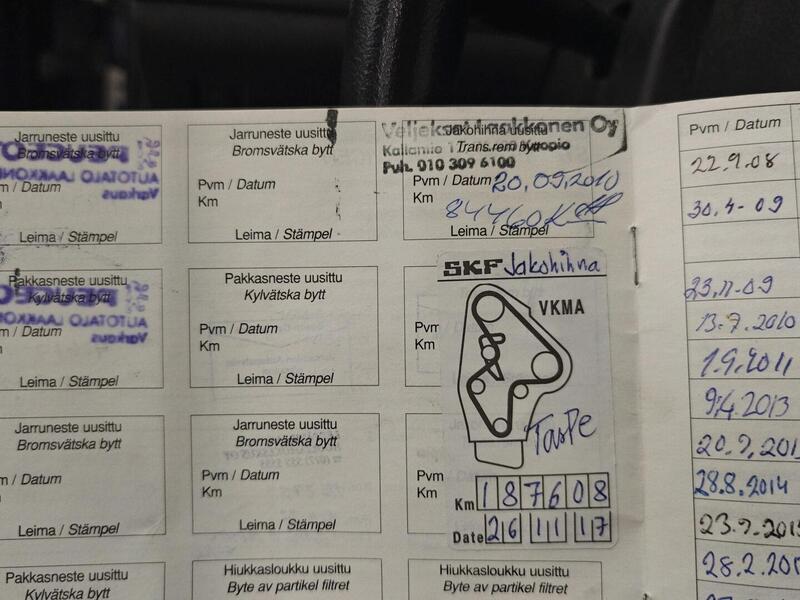 Jarruneste uusittu
Bromsvätska bytt
m / Datum
Jarruneste uusittu
Bromsvätska bytt
Pvm / Datum
Km
Leima / Stämpel
Jakohihna uusittu
Trans.rem bytt
Puh. 010 309 6100
Pvm / Datum 20.09.2010
Km
84460
Leima / Stämpel
Pakkasneste uusittu
Kylvätska bytt
m / Datum
Leima / Stämpel
Pakkasneste uusittu
Kylvätska bytt
Pvm / Datum
Km
Leima / Stämpel
Pvm
Km
SKF Jakohihna
VKMA
TasPe
Km 187608
Date 26 11 17
Jarruneste uusittu
Bromsvätska bytt
m / Datum
Leima / Stämpel
Jarruneste uusittu
Bromsvätska bytt
Pvm / Datum
Km
Leima / Stämpel
Pvm
Km
Pakkasneste uusittu
Kylvätska bytt
Hiukkasloukku uusittu
Byte av partikel filtret
Hiukkasloukku uusittu
Byte av partikel filtret
Pvm / Datum
22.9.08
30.4-09
23.11-09
13.7.2010
1.9.2011
9.4.2013
28.8.2014